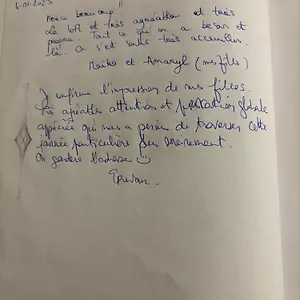 6.01.2023
beaucoup !!
Le   est très agréable et très
propre. Tout ce qu'on a besoin est
là. On s'est sentis très accueillies
et Amaryl (mes filles)
Je confirme l'impression de mes filles.
Très agréables attentions et prestation globale
appréciée qui nous a permis de traverser cette
journée particulière plus sereinement.
On gardera l'adresse
Erwan.